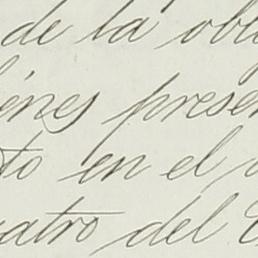 de la ob
ienes presen
to en el
uatro del